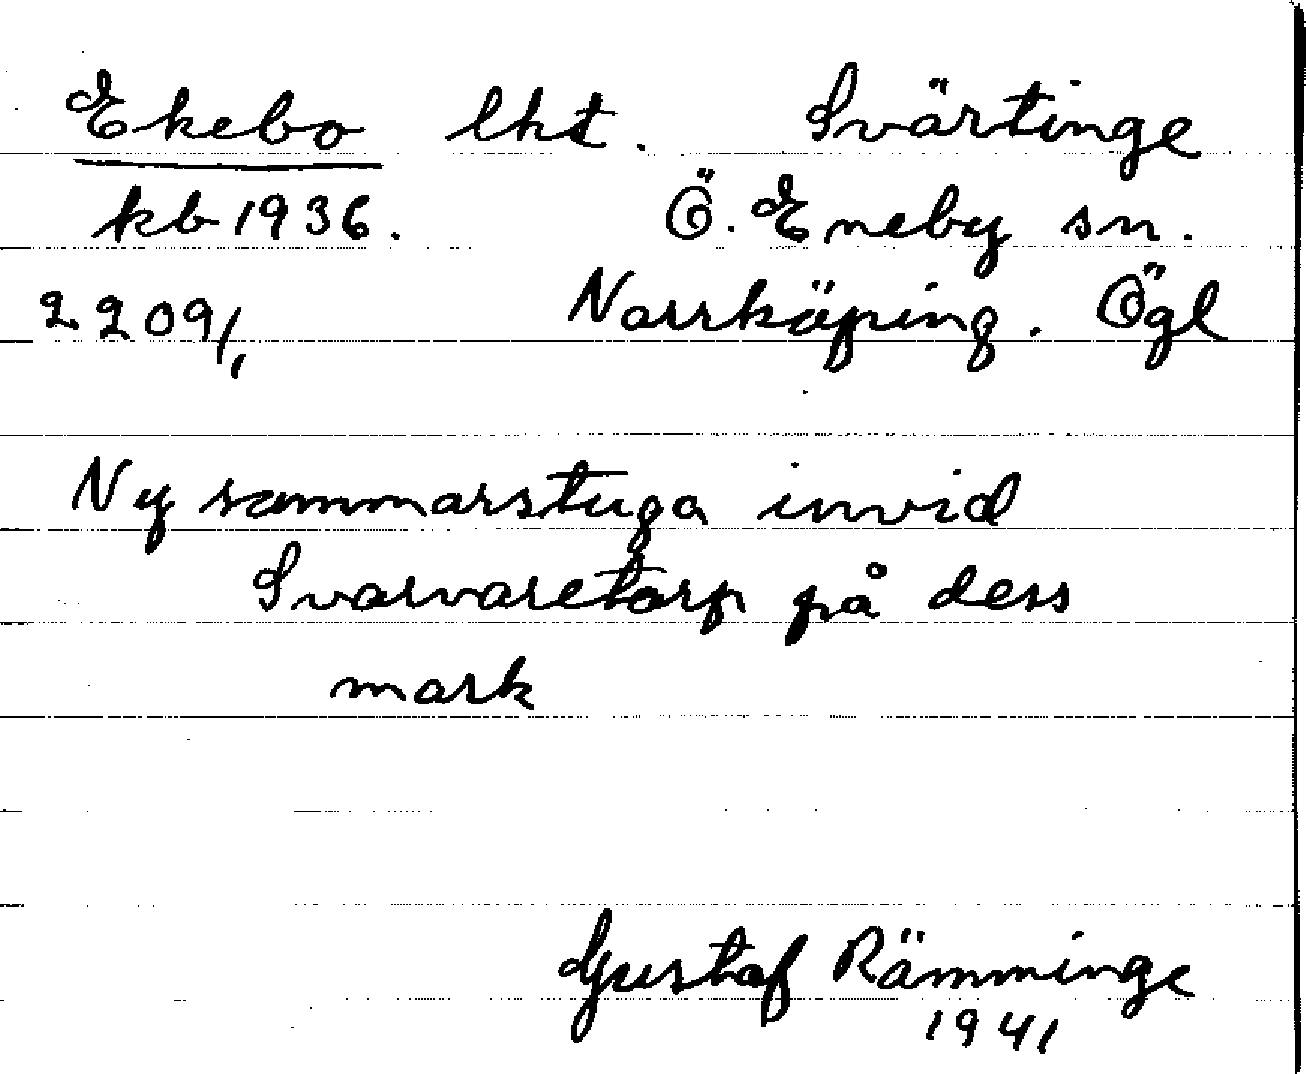 Ekebo lht. Svärtinge
kb 1936. Ö. Eneby sn.
2209/1 Norrköping. Ögl
Ny sommarstuga invid
Svarvaretorp på dess
mark
Gustaf Rämminge
1941